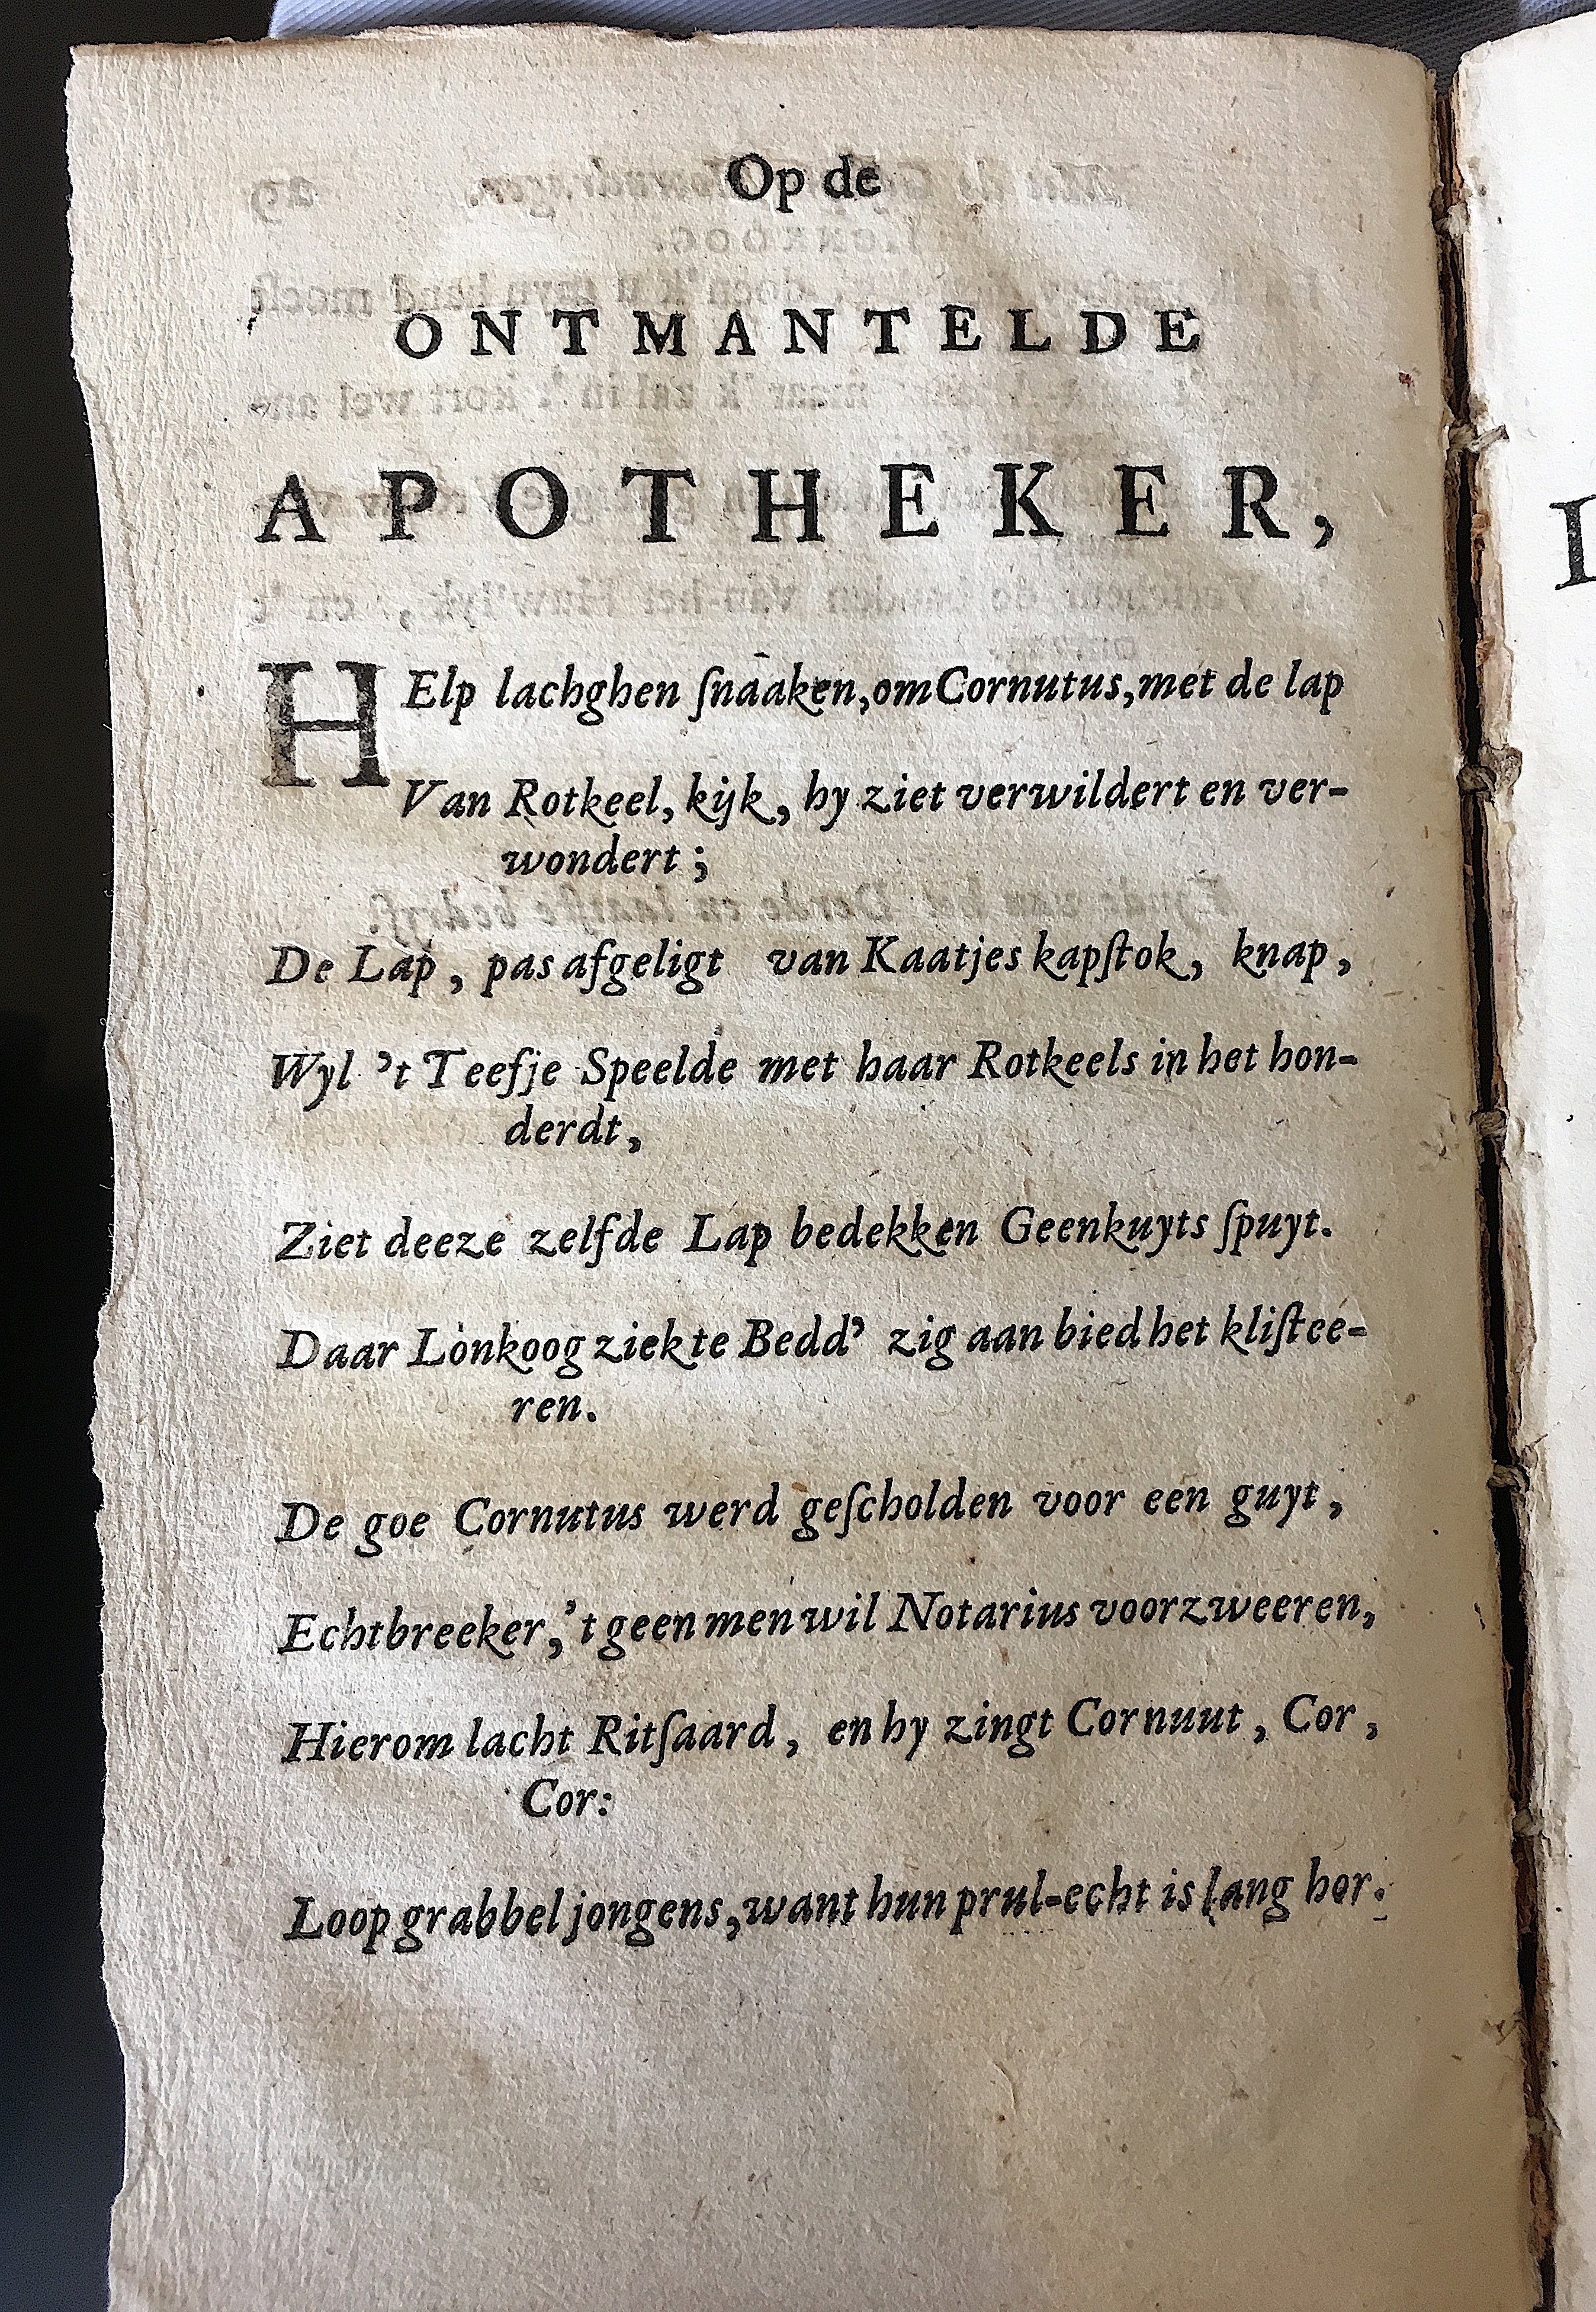 Op de
ONTMANTELDE
APOTHEKER,
HElp lachghen ſnaaken, om Cornutus, met de lap
Van Rotkeel, kijk, hy ziet verwildert en ver-
wondert ;
De Lap, pas afgeligt van Kaatjes kapſtok, knap,
Wyl 't Teefje Speelde met haar Rotkeels in het hon-
derdt,
Ziet deeze zelfde Lap bedekken Geenkuyts ſpuyt.
Daar Lonkoog ziekte Bedd' zig aan bied het kliſtee-
ren.
De goe Cornutus werd geſcholden voor een guyt,
Echtbreeker, 't geen men wil Notarius voorzweeren,
Hierom lacht Ritſaard, en hy zingt Cornuut, Cor,
Cor:
Loop grabbel jongens, want hun prul-echt is lang hor.